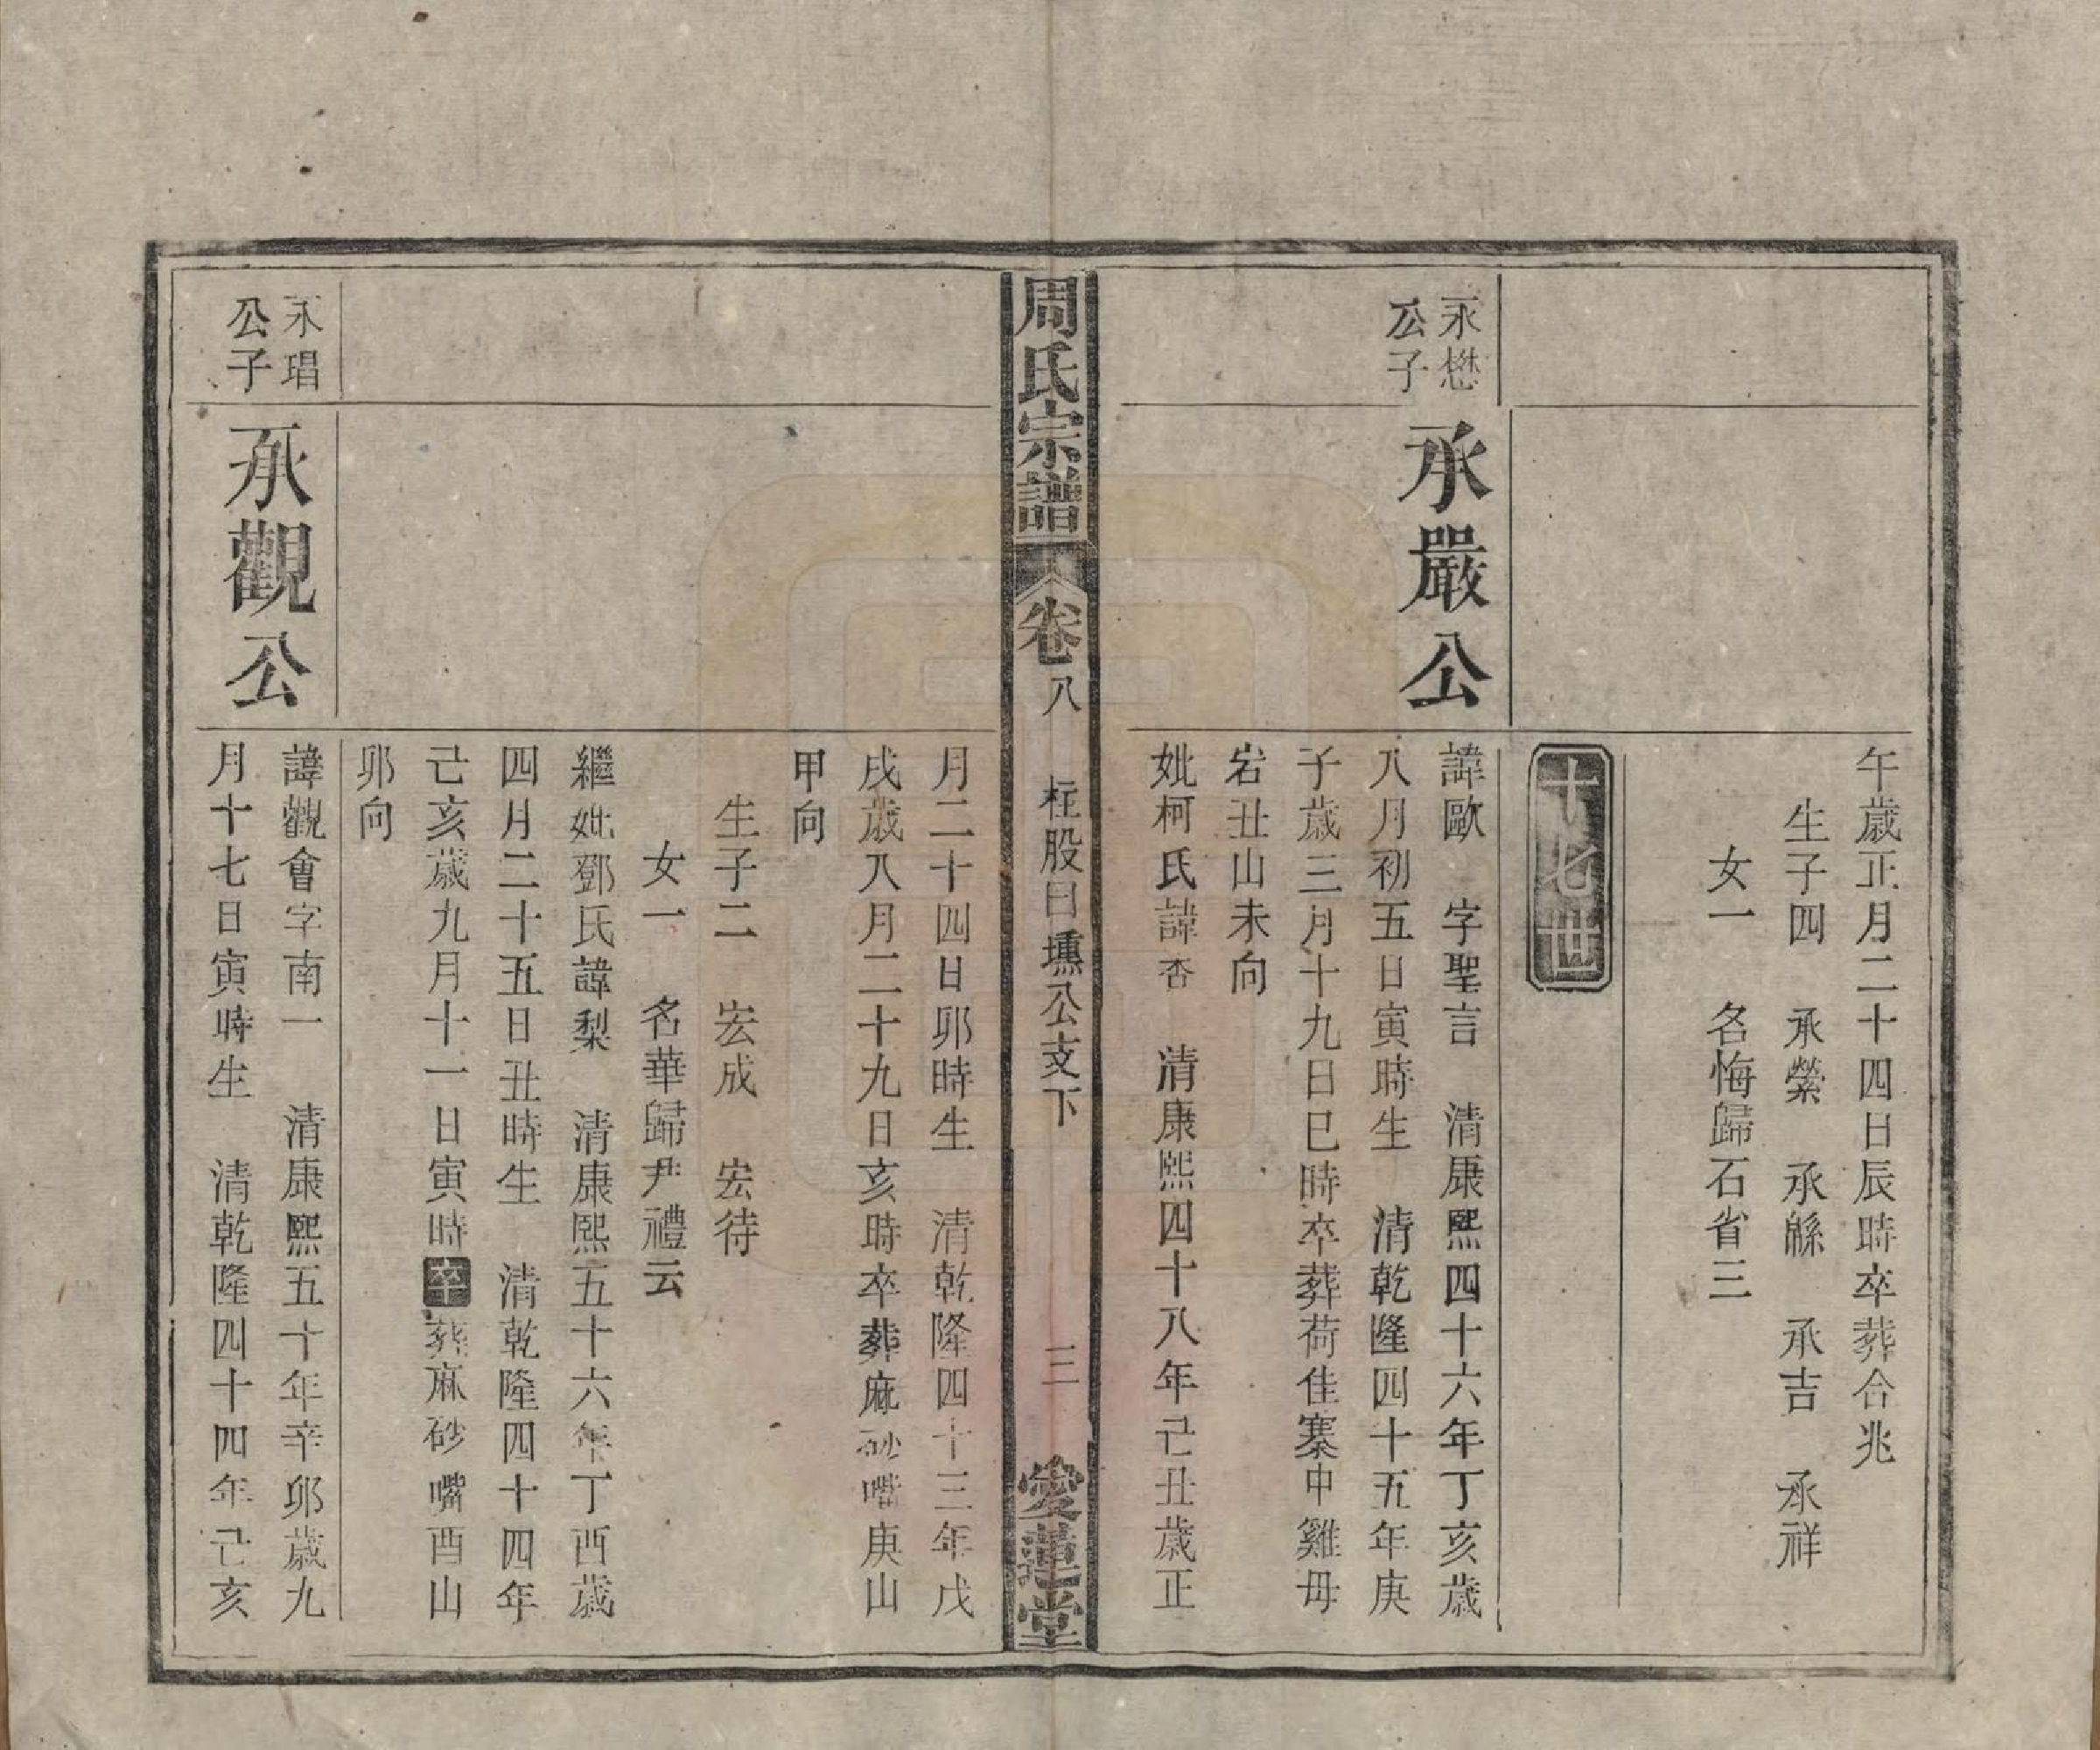 午歲正月二十四日辰時卒葬合兆
生子四　承縈　承緜　承吉　承祥
女一　名悔歸石省三
十七世
永懋
公子
承嚴公
諱歐　字聖言　清康熙四十六年丁亥歲
八月初五日寅時生　清乾隆四十五年庚
子歲三月十九日巳時卒葬荷佳寨申雞毋
岩丑山未向
妣柯氏諱杏　清康熙四十八年己丑歲正
周氏宗譜　卷八　柱股曰壎公支下　三　愛蓮堂
月二十四日卯時生　清乾隆四十三年戊
戌歲八月二十九日亥時卒葬麻砂嘴庚山
甲向
生子二　宏成　宏待
女一　名華歸尹禮云
繼妣鄧氏諱梨　清康熙五十六年丁酉歲
四月二十五日丑時生　清乾隆四十四年
己亥歲九月十一日寅時卒葬麻砂嘴酉山
卯向
永琩
公子
承觀公
諱觀會字南一　清康熙五十年辛卯歲九
月十七日寅時生　清乾隆四十四年己亥